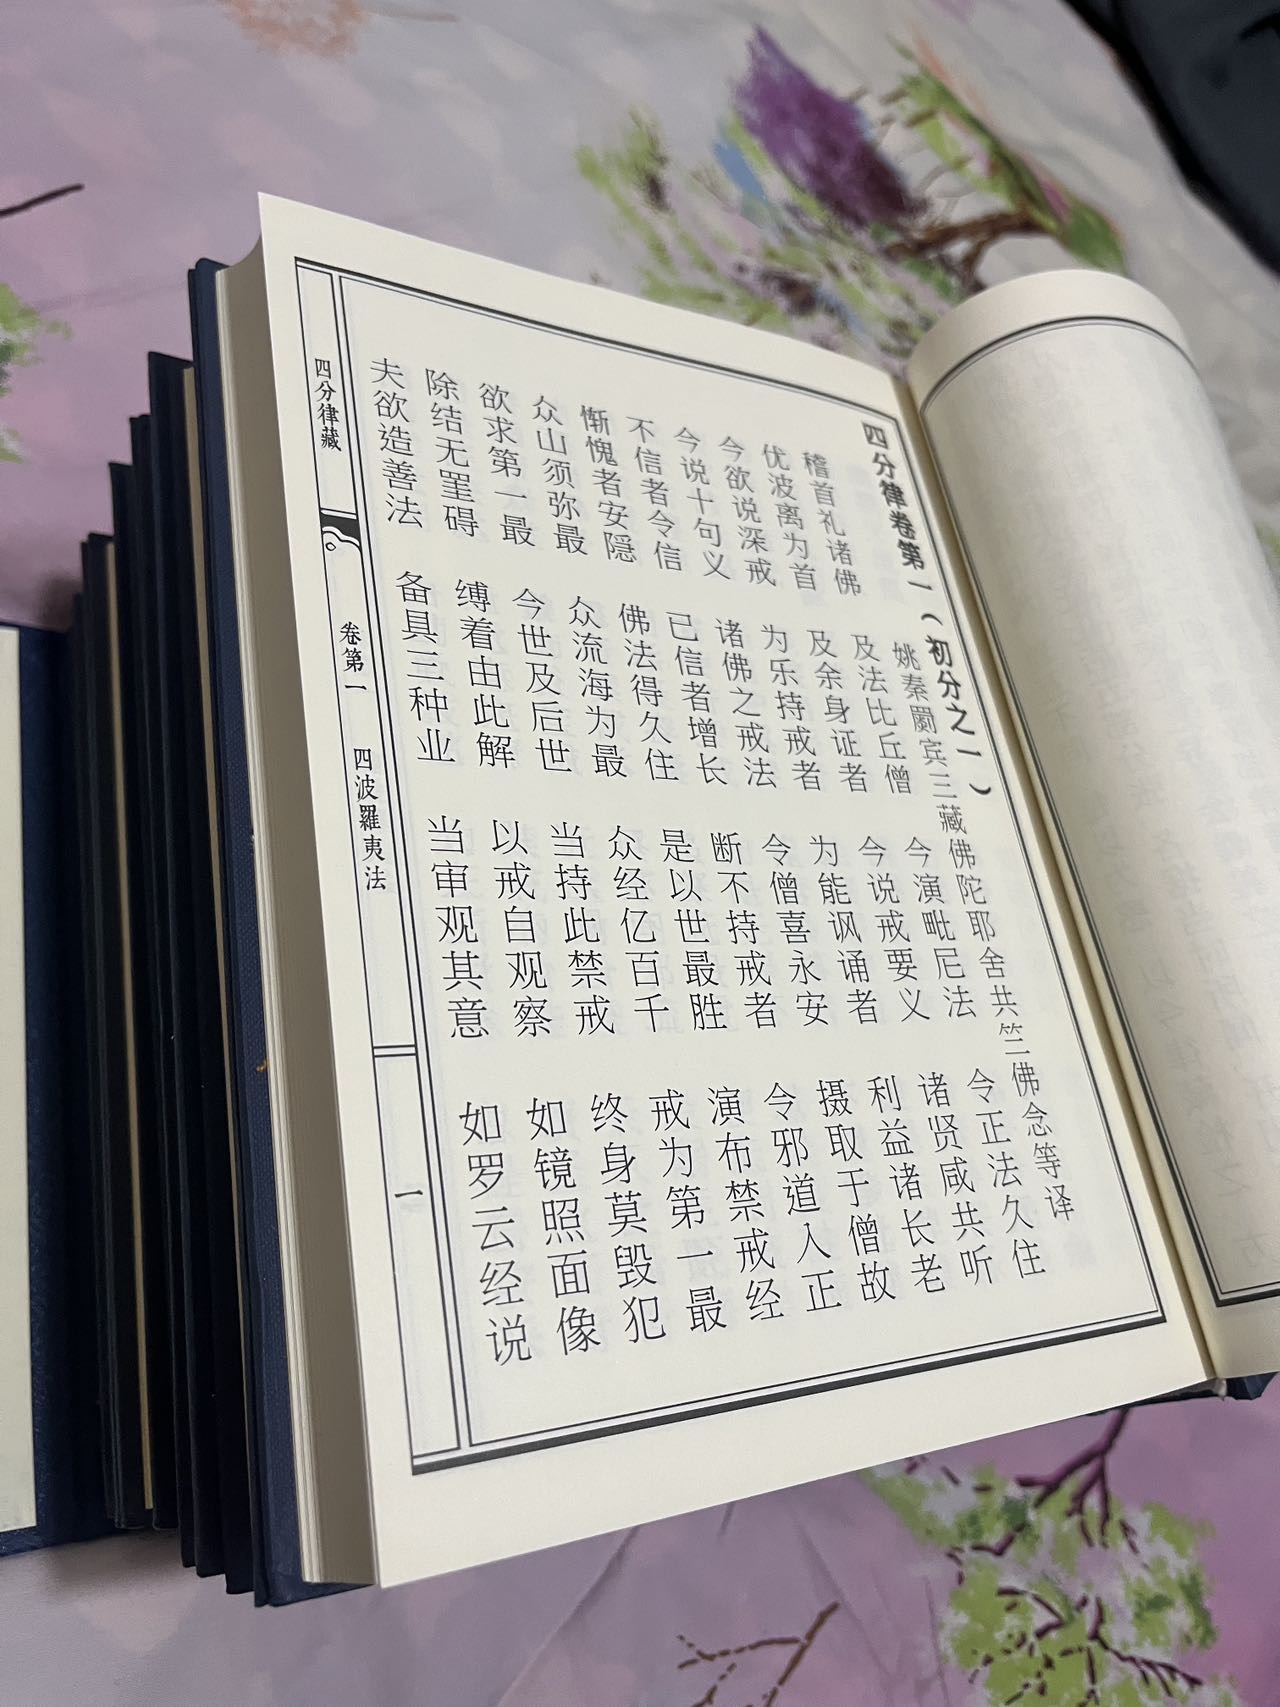 四分律卷第一(初分之一)
姚秦罽宾三藏佛陀耶舍共竺佛念等译
稽首礼诸佛 及法比丘僧 今演毗尼法 令正法久住
优波离为首 及余身证者 今说戒要义 诸贤咸共听
今欲说深戒 为乐持戒者 为能讽诵者 利益诸长老
今说十句义 诸佛之戒法 令僧喜永安 摄取于僧故
不信者令信 已信者增长 断不持戒者 令邪道入正
惭愧者安隐 佛法得久住 是以世最胜 演布禁戒经
众山须弥最 众流海为最 众经亿百千 戒为第一最
欲求第一最 今世及后世 当持此禁戒 终身莫毁犯
除结无罣碍 缚着由此解 以戒自观察 如镜照面像
夫欲造善法 备具三种业 当审观其意 如罗云经说
四分律藏 卷第一 四波羅夷法 一